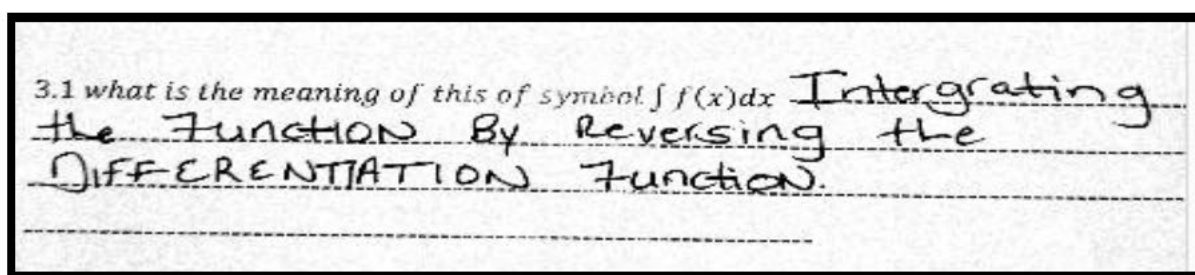 3.1 what is the meaning of this of symbol ∫ f(x)dx Intergrating
the Function By Reversing the
DIFFERENTIATION Function.